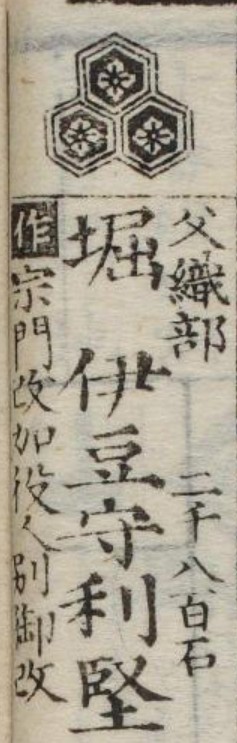 父織部 二千八百石
堀 伊豆守利堅
作 宗門改加役人別御改